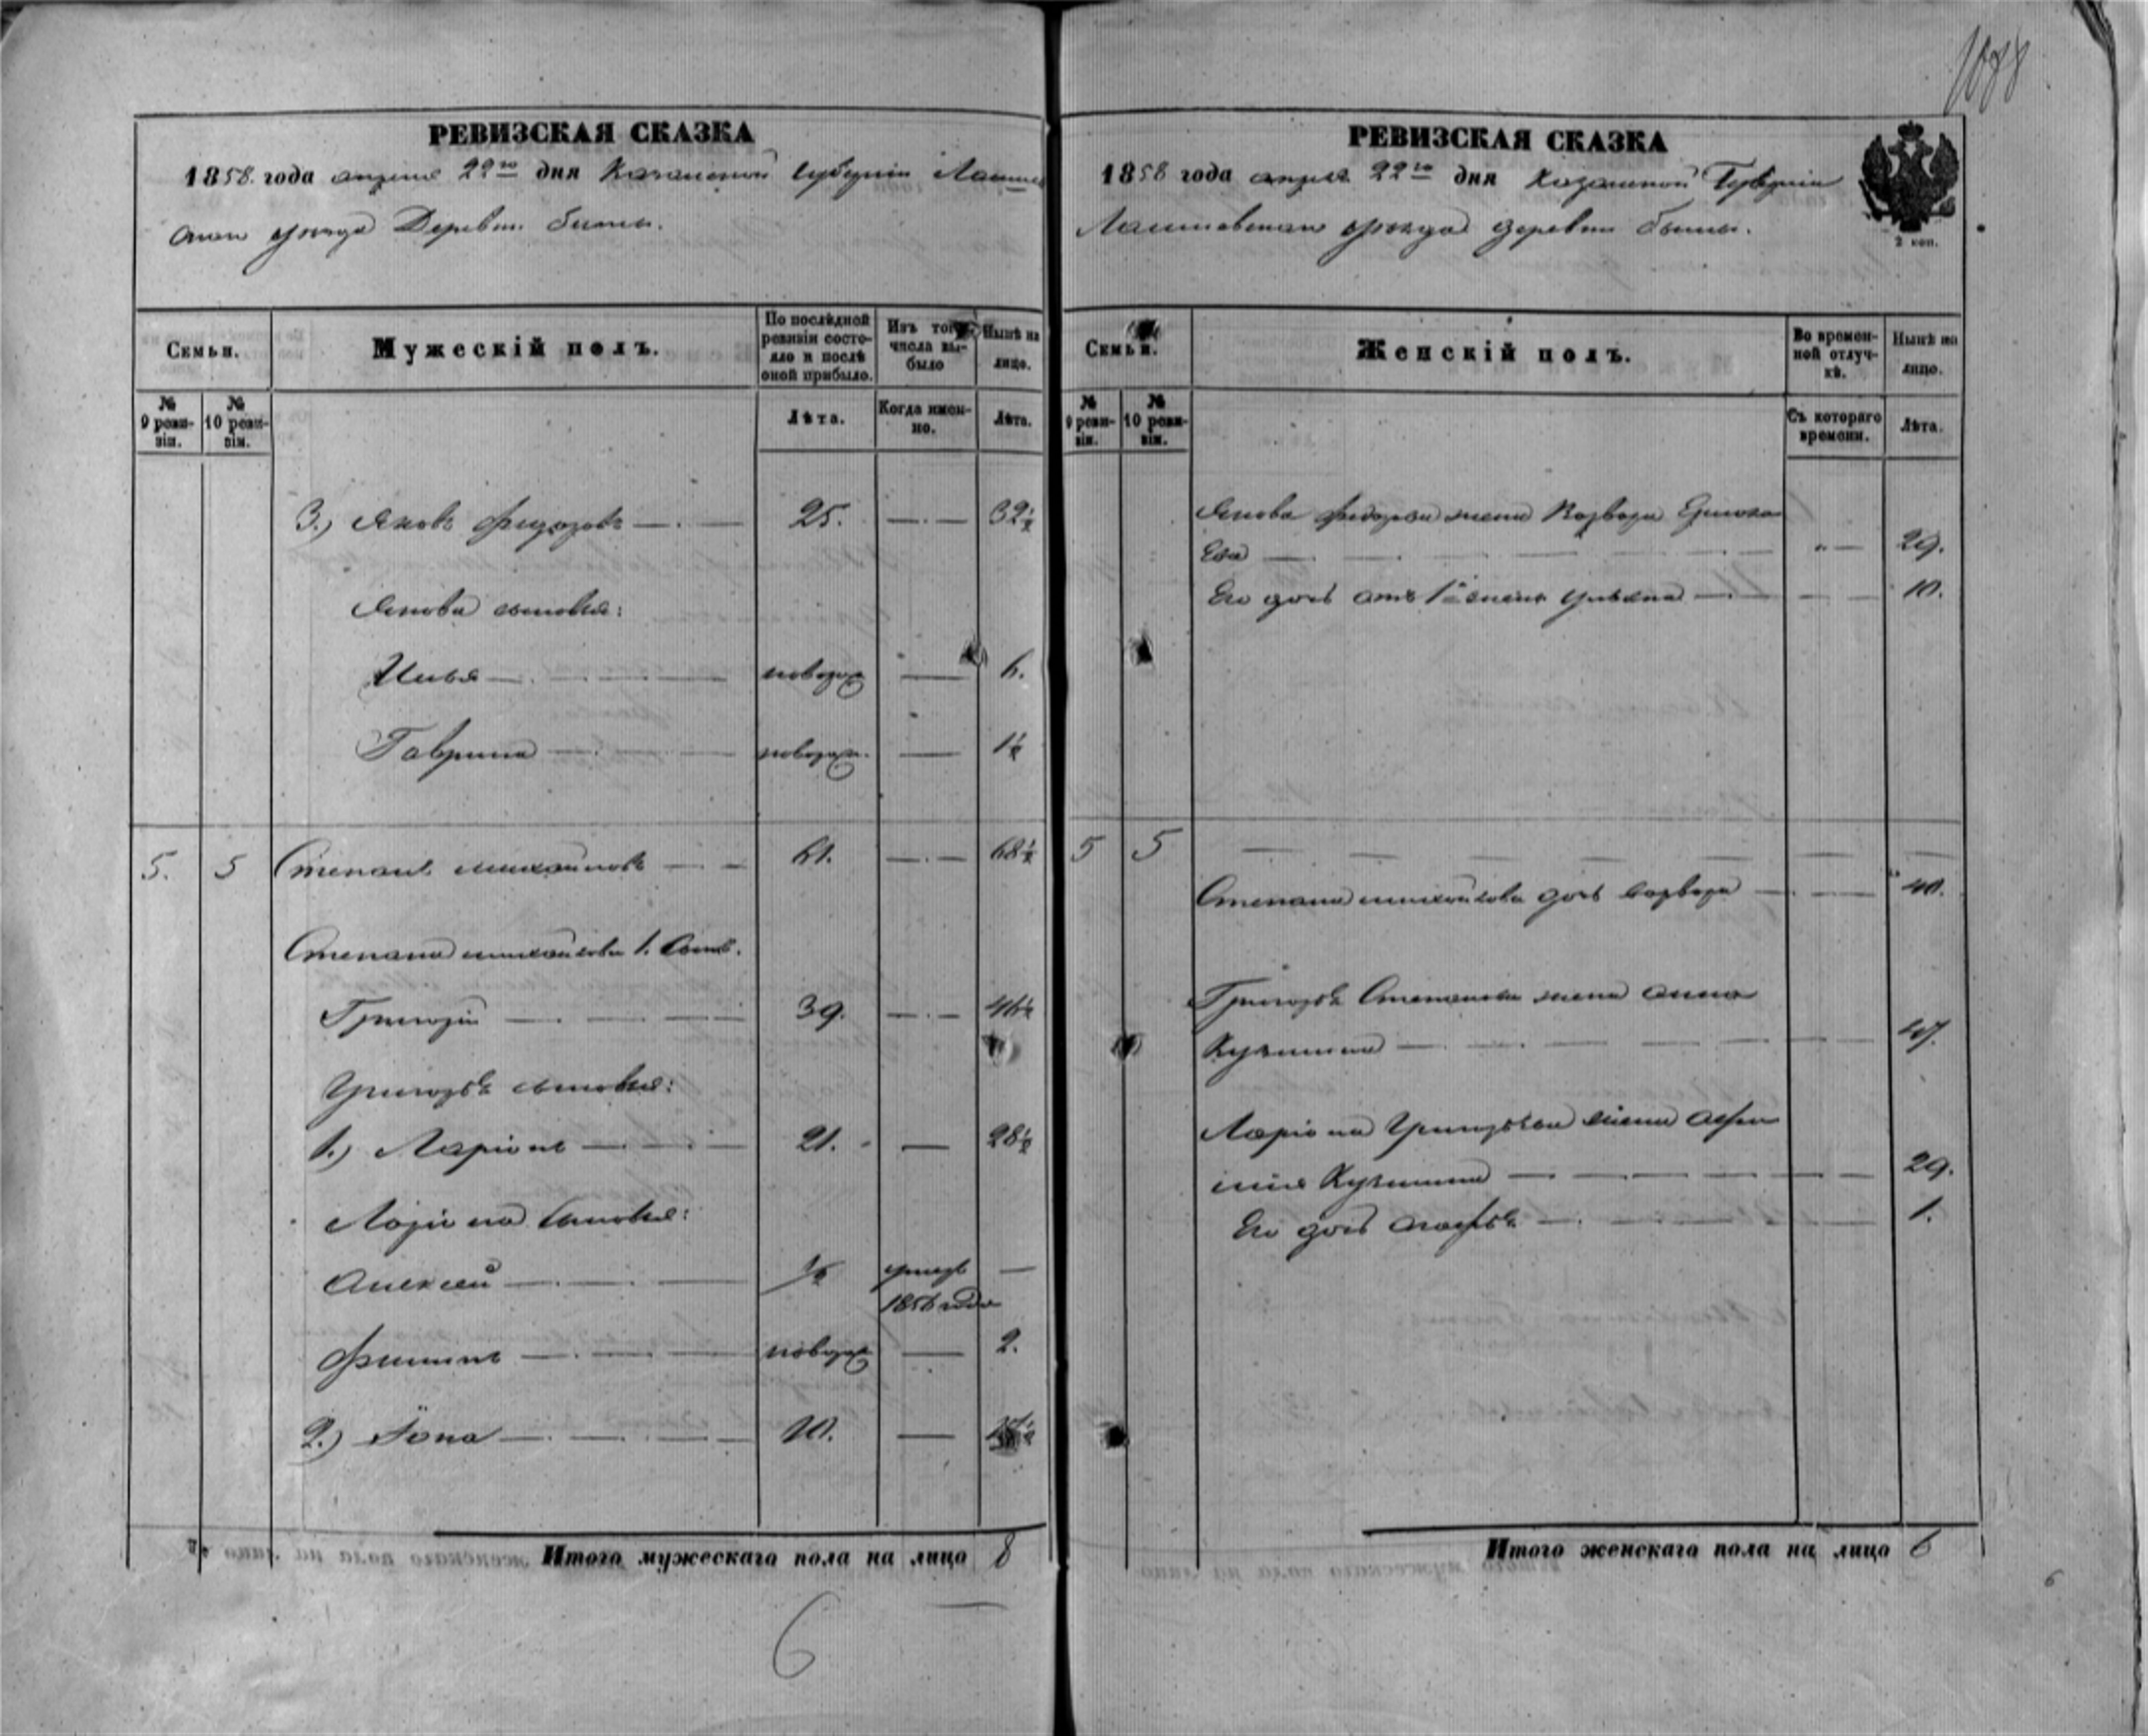 1088
РЕВИЗСКАЯ СКАЗКА
1858. года апреля 22го дня Казанской губернии Лаишев
скаго уезда Деревни
Семьи.
Мужескій полъ.
По послѣдной ревизіи состояло и послѣ оной прибыло.
Изъ того числа выбыло
Нынѣ на лицо.
№ 9 ревизіи.
№ 10 ревизіи.
Лѣта.
Когда именно.
Лѣта.
3.) Яковъ Федоровъ 25. 32½
Якова сыновья:
Илья новорож 6.
Гаврила новорож. 1½
5. 5 Степанъ Михайловъ 61. 68½
Степана Михайлова 1. Сынъ.
Григорій 39. 46½
Григорья сыновья:
1.) Ларіонъ 21. 28½
Ларіона сыновья:
Алексей ½ умеръ
1856 года
Филипъ новорож 2.
2.) Іона 10.
Итого мужескаго пола на лицо 8
6
РЕВИЗСКАЯ СКАЗКА
1858 года апреля 22го дня Казанской Губерніи
Лаишевскаго уезда деревни
2 коп.
Семьи.
Женскій полъ.
Во временной отлучкѣ.
Нынѣ на лицо.
№ 9 ревизіи.
№ 10 ревизіи.
Съ котораго времени.
Лѣта.
Якова Федорова жена Варвара Ермола
ева 29.
Его дочь отъ 1й жены Ульяна 10.
5 5
Степана Михайлова дочь Варвара 40.
Григорья Степанова жена Анна
Кузмина 47.
Ларіона Григорьева жена Афи
мія Кузмина 29.
Его дочь 1.
Итого женскаго пола на лицо 6